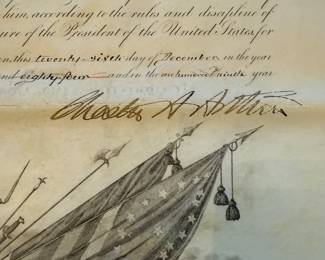 him, according to the rules and discipline of
ure of the President of the United States for
this twenty sixth day of December in the year
nd eighty four and in the one hundred and ninth year
Chester A Arthur